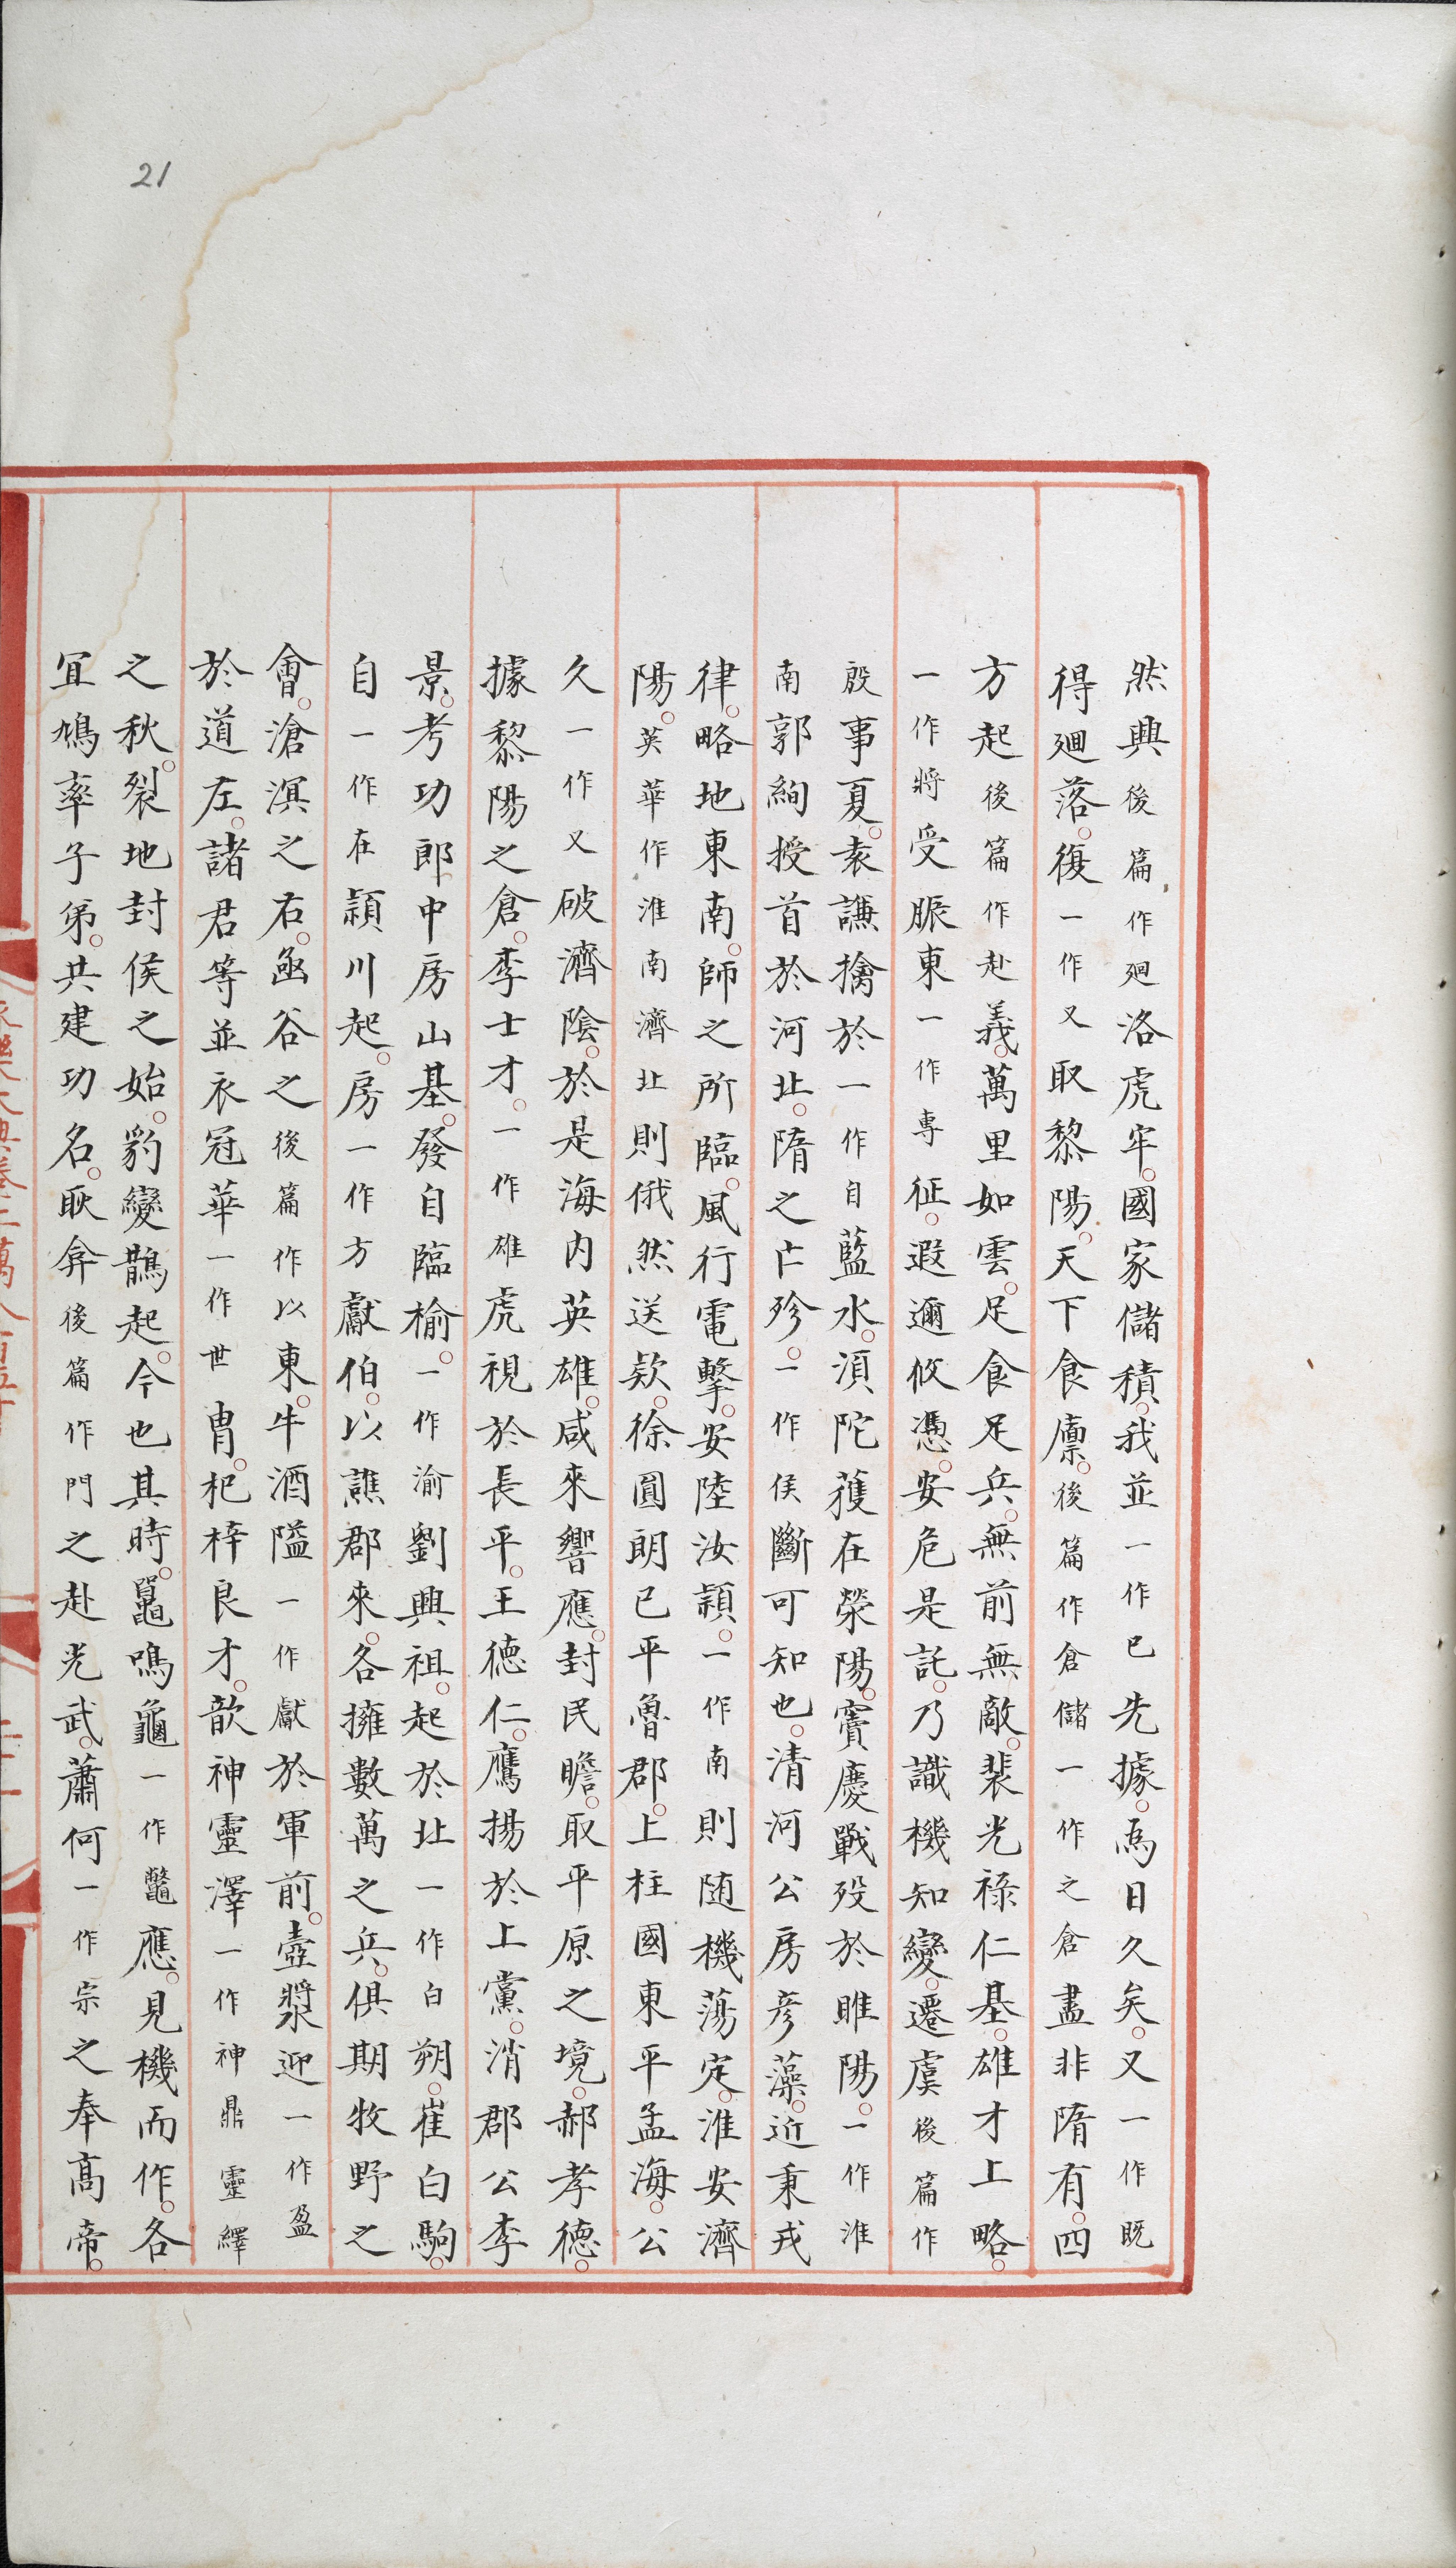 21
然興後篇作廻洛虎牢國家儲積我並一作已先據為日久矣又一作既
得廻落復一作又取黎陽天下食廩後篇作倉儲一作之倉盡非隋有四
方起後篇作赴義萬里如雲足食足兵無前無敵裴光祿仁基雄才上略
一作將受脤東一作專征遐邇攸憑安危是託乃識機知變遷虞後篇作
殷事夏袁謙擒於一作自藍水須陀獲在滎陽竇慶戰歿於睢陽一作淮
南郭絢授首於河北隋之亡殄一作侯斷可知也清河公房彥藻近秉戎
律略地東南師之所臨風行電擊安陸汝潁一作南則随機蕩定淮安濟
陽英華作淮南濟北則俄然送款徐圓朗已平魯郡上柱國東平孟海公
久一作又破濟陰於是海内英雄咸來響應封民瞻取平原之境郝孝德
據黎陽之倉李士才一作雄虎視於長平王德仁鷹揚於上黨消郡公李
景考功郎中房山基發自臨榆一作渝劉興祖起於北一作白朔崔白駒
自一作在潁川起房一作方獻伯以譙郡來各擁數萬之兵俱期牧野之
會滄溟之右函谷之後篇作以東牛酒隘一作獻於軍前壺漿迎一作盈
於道左諸君等並衣冠華一作世胄杞梓良才歆神靈澤一作神鼎靈繹
之秋裂地封侯之始豹變鵲起今也其時鼉鳴龜一作鼈應見機而作各
宜鳩率子弟共建功名耿弇後篇作門之赴光武蕭何一作宗之奉高帝